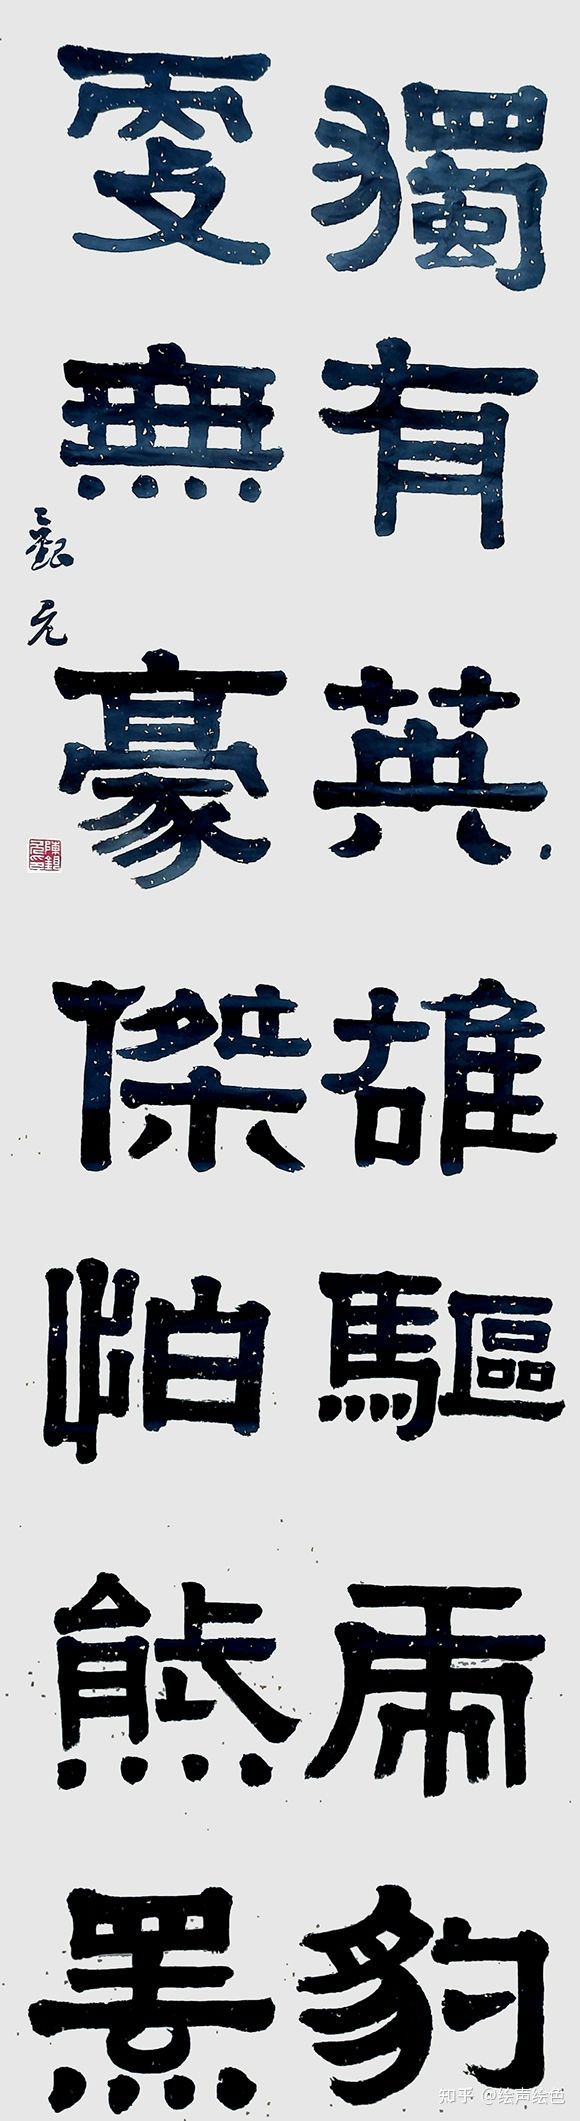 獨有英雄驅虎豹
更無豪傑怕熊羆
知乎 @绘声绘色